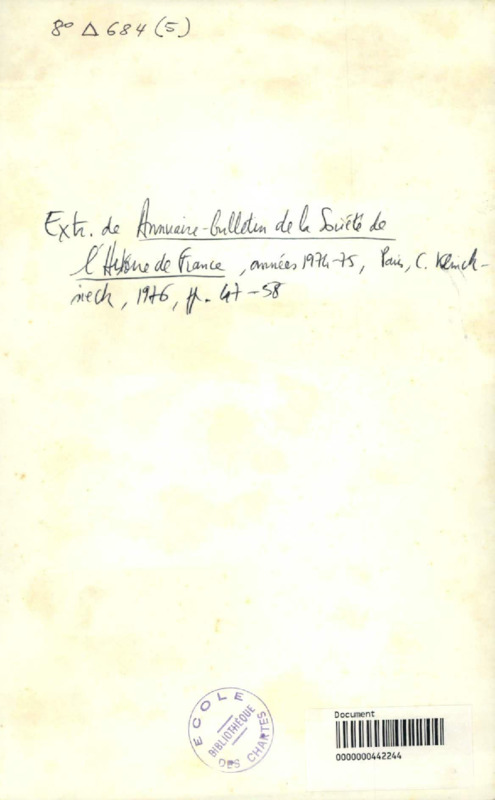 8° Δ 684 (5)
Extr. de Annuaire-bulletin de la Société de
l'Histoire de France, années 1974-75, Paris, C. Klinck-
sieck, 1976, pp. 47-58
ECOLE
BIBLIOTHÈQUE
DES CHARTES
Document
0000000442244